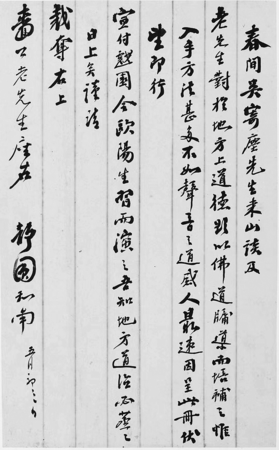 春間吳寄塵先生來山談及
老先生對於地方上道德頗以佛道牖導而培補之惟
入手方法甚多不如聲音之道感人最速因呈此冊伏
望即行
宣付越園令歐陽生習而演之吾知地方道治必蒸蒸
日上矣謹請
裁奪右上
嗇公老先生座右
靜圓和南
五月初三日